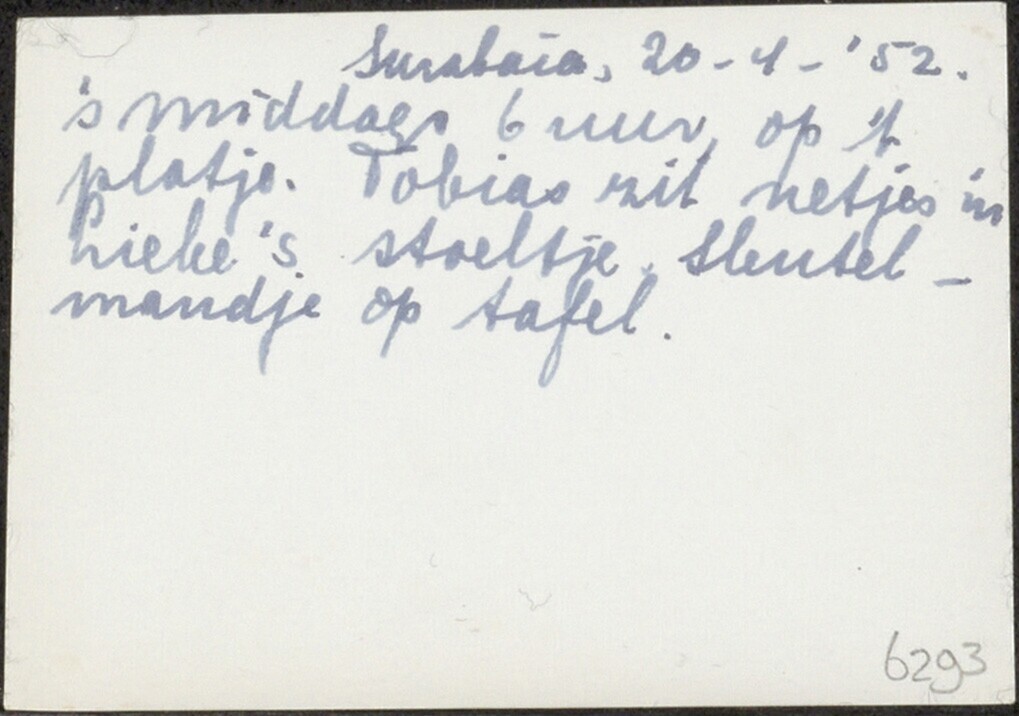 Surabaia, 20-4-'52.
's middags 6 uur, op 't
platje. Tobias zit netjes in
Lieke's stoeltje. Sleutel-
mandje op tafel.
6293